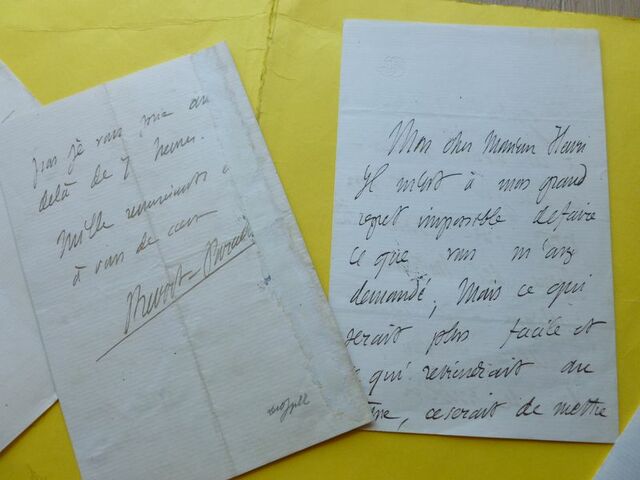 pas je vous prie au
delà de 7 heures.
Mille remerciements &
à vous de coeur
Prevost-Paradol
Mon cher Monsieur Henri
Il m'est à mon grand
regret impossible de faire
ce que vous m'avez
demandé, Mais ce qui
serait plus facile et
qui reviendrait au
même, ce serait de mettre